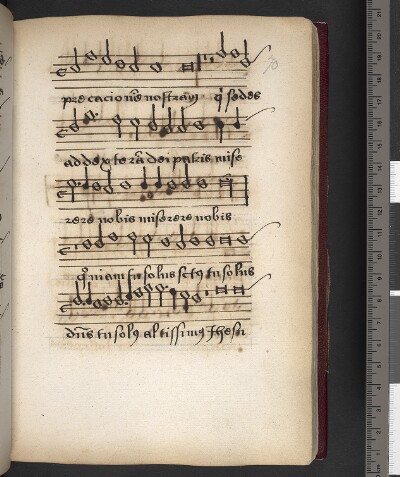 precacionē nostram q̄ sedes
ad dexterā dei patris mise
rere nobis miserere nobis
q̄niam tu solus sctꝰ tu solus
dn̄s tu solꝰ altissimꝰ Jhesu